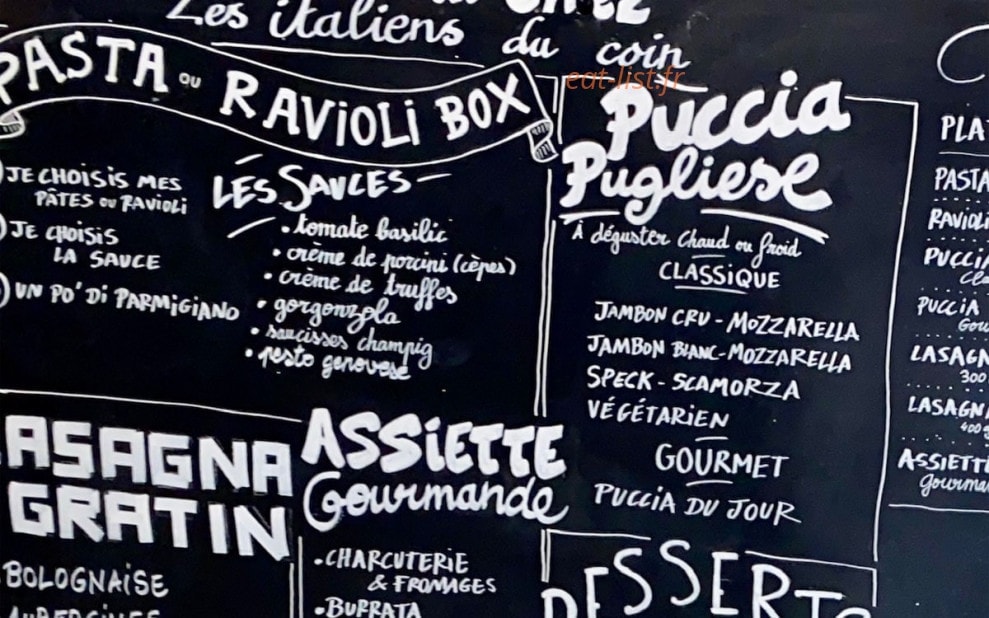 CHEZ
Les italiens du coin
eat-list.fr
PASTA ou RAVIOLI BOX
JE CHOISIS MES
PÂTES ou RAVIOLI
JE CHOISIS
LA SAUCE
UN PO' DI PARMIGIANO
LES SAUCES
• tomate basilic
• crème de porcini (cèpes)
• crème de truffes
• gorgonzola
• saucisses champig
• pesto genovese
LASAGNA
GRATIN
BOLOGNAISE
AUBERGINES
ASSIETTE
Gourmande
• CHARCUTERIE
& FROMAGES
• BURRATA
PUCCIA
Pugliese
À déguster chaud ou froid
CLASSIQUE
JAMBON CRU - MOZZARELLA
JAMBON BLANC - MOZZARELLA
SPECK - SCAMORZA
VÉGÉTARIEN
GOURMET
PUCCIA DU JOUR
DESSERTS
PLA
PASTA
RAVIOLI
PUCCIA
Cla
PUCCIA
Gou
LASAGN
300
LASAGN
400 g
ASSIETTE
gourman